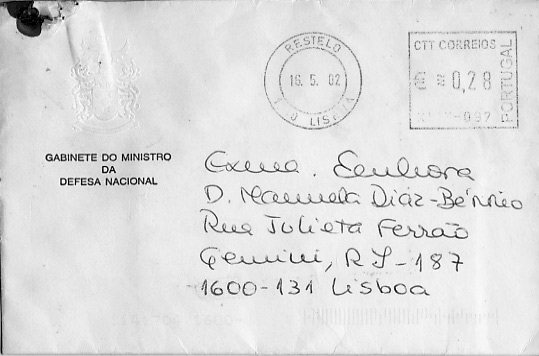 RESTELO
16. 5. 02
LISBOA
CTT CORREIOS
€ = 0,28
PORTUGAL
GABINETE DO MINISTRO
DA
DEFESA NACIONAL
Exma. Senhora
D. Manuela Diáz-Bérrio
Rua Julieta Ferrão
Gemini, RJ-187
1600-131 Lisboa